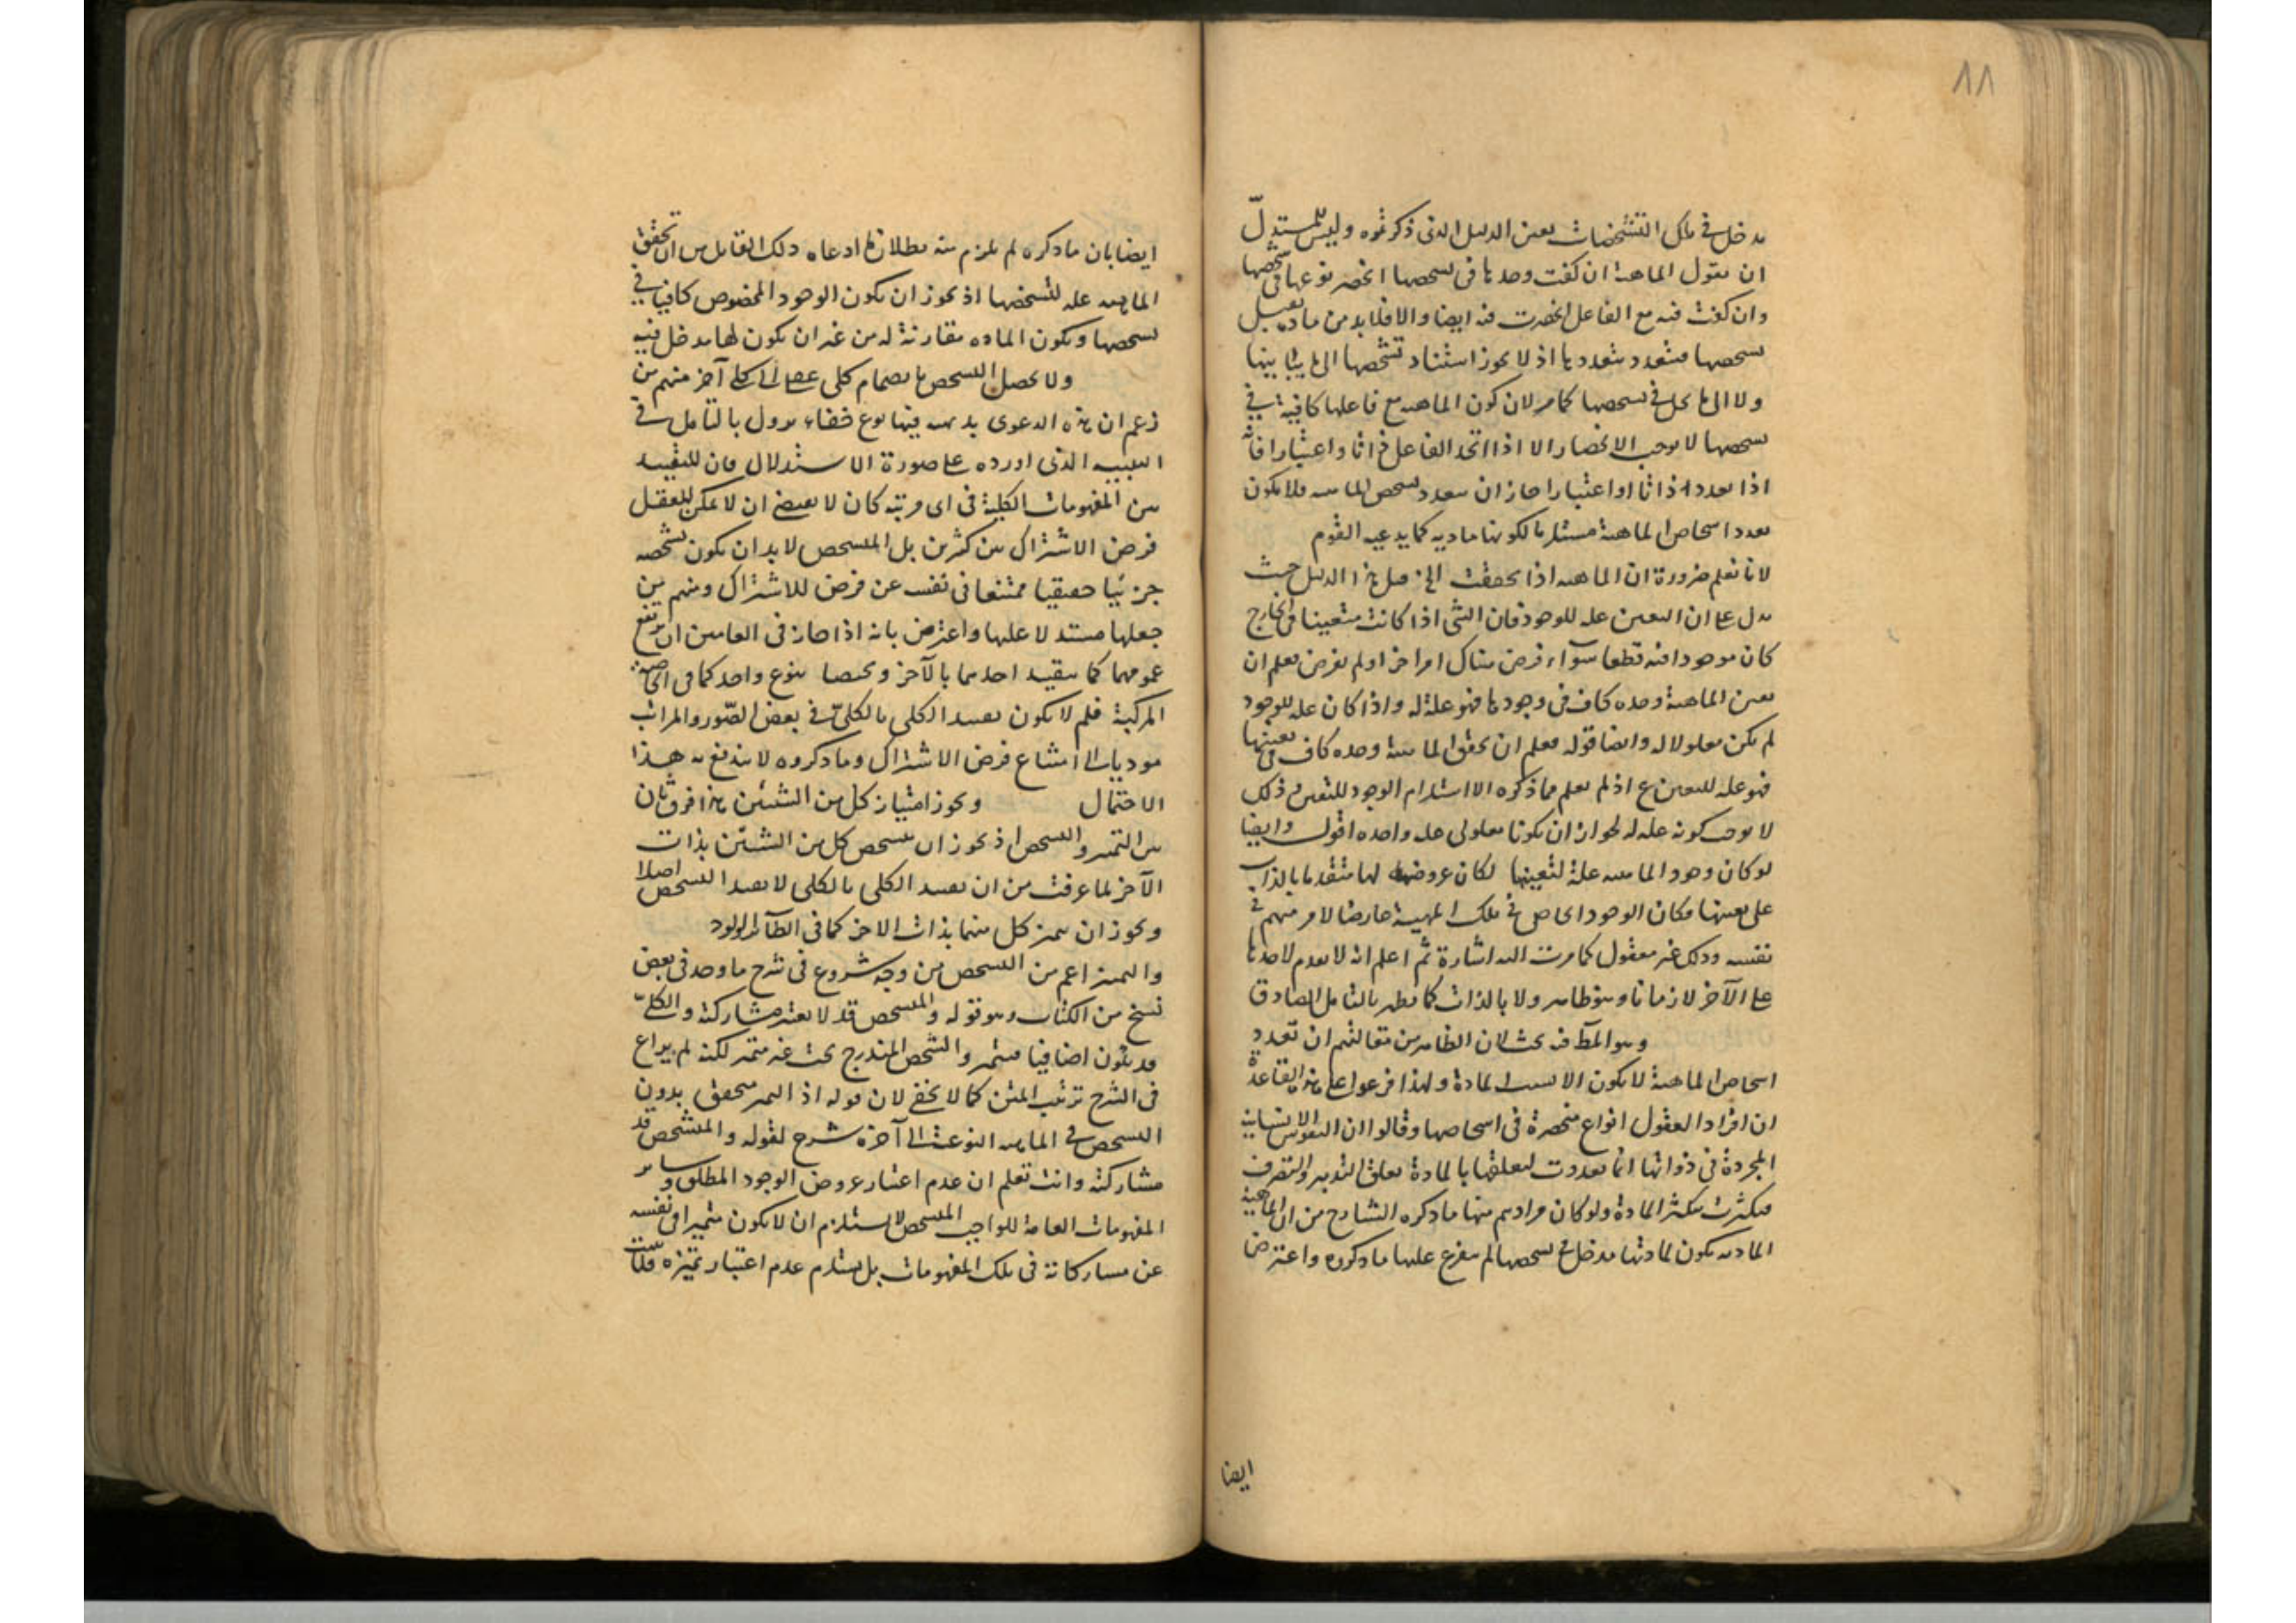 ١١
مدخل في تلك التشخصات بعين الدليل الذي ذكرتموه وليس للمستدل
ان يقول الماهية ان كفت وحدها في تشخصها انحصر نوعها في شخصها
وان كفت فيه مع الفاعل انحصرت فيه ايضا والا فلا بد من مادة
تشخصها متعدد بتعددها اذ لا يجوز استناد تشخصها الى ما يباينها
ولا الى ما يحل في تشخصها كما مر لان كون الماهية مع فاعلها كافية في
تشخصها لا يوجب الانحصار الا اذا اتحد الفاعل ذاتا واعتبارا فانه
اذا تعدد ذاتا او اعتبارا جاز ان يتعدد تشخص الماهية فلا يكون
تعدد اشخاص الماهية مستلزما لكونها مادية كما يدعيه القوم
لانا نعلم ضرورة ان الماهية اذا تحققت الخ قيل هذا الدليل حيث
يدل على ان التعين علة للوجود فان الشي اذا كانت متعينا في الخارج
كان موجودا فيه قطعا سواء فرض هناك امر اخر او لم يفرض فعلم ان
تعين الماهية وحده كاف في وجودها فهو علة له واذا كان علة للوجود
لم يكن معلولا له وايضا قوله فعلم ان تحقق الماهية وحده كاف في تعينها
فهو علة للتعين ع اذ لم يعلم مما ذكره الا استلزام الوجود للتعين و ذلك
لا يوجب كونه علة له لجواز ان يكونا معلولي علة واحدة اقول وايضا
لو كان وجود الماهية علة لتعينها لكان عروضه لها متقدما بالذات
على تعينها فكان الوجود الخاص في تلك المهية عارضا لامر مبهم في
نفسه وذلك غير معقول كما مرت اليه اشارة ثم اعلم انه لا تقدم لاحدها
على الآخر لا زمانا وهو ظاهر ولا بالذات كما يظهر بالتامل الصادق
وهو المط فيه بحث لان الظاهر من مقالتهم ان تعدد
اشخاص الماهية لا يكون الا بسبب المادة ولهذا فرعوا على هذه القاعدة
ان افراد العقول انواع منحصرة في اشخاصها وقالوا ان النفوس الانسانية
المجردة في ذواتها انما تعددت لتعلقها بالمادة تعلق التدبير والتصرف
فيتكثرت بتكثر المادة ولو كان مرادهم منها ما ذكره الشارح من ان الماهية
المادية يكون لمادتها مدخل في تشخصها لم يتفرع عليها ما ذكروه واعترض
ايضا
ايضا بان ما ذكره لم يلزم منه بطلان ما ادعاه ذلك القايل من ان تحقق
الماهية علة لتشخصها اذ يجوز ان يكون الوجود المخصوص كافيا في
تشخصها ويكون المادة مقارنة له من غير ان يكون لها مدخل فيه
ولا يحصل التشخص بانضمام كلي عقلي الى كلي آخر منهم من
زعم ان هذه الدعوى بديهية فيها نوع خفاء يزول بالتامل في
التنبيه الذي اورده على صورة الاستدلال فان التقييد
بين المفهومات الكلية في اي مرتبة كان لا يقتضي ان لا يمكن للعقل
فرض الاشتراك بين كثيرين بل المتشخص لا بد ان يكون تشخصه
جزئيا حقيقيا ممتنعا في نفسه عن فرض للاشتراك ومنهم من
جعلها مستدلا عليها واعترض بانه اذا جاز في العامين ان يرتفع
عمومهما كما يتقيد احدهما بالآخر ويختصا بنوع واحد كما في الخاصة
المركبة فلم لا يكون تقييد الكلي بالكلي في بعض الصور والمراتب
موديا الى امتناع فرض الاشتراك وما ذكروه لا يندفع به هذا
الاحتمال ويجوز امتياز كل من الشيئين هذا فرق ثان
بين التميز والتشخص اذ يجوز ان يتشخص كل من الشيئين بذات
الآخر لما عرفت من ان تقييد الكلي بالكلي لا يفيد التشخص اصلا
ويجوز ان يتميز كل منهما بذات الاخر كما في الطائر الولود
والتميز اعم من التشخص من وجه شروع في شرح ما وجد في بعض
نسخ من الكتاب وهو قوله والمتشخص قد لا يعتبر مشاركته والكلي
قد يكون اضافيا فيتميز والشخص المندرج تحت غيره متميز لكنه لم يراع
في الشرح ترتيب المتن كما لا يخفى لان قوله اذ التميز يتحقق بدون
التشخص في الماهية النوعية الى آخره شرح لقوله والمتشخص قد
مشاركته وانت تعلم ان عدم اعتبار عروض الوجود المطلق وساير
المفهومات العامة للواجب المتشخص لا يستلزم ان لا يكون متميزا في نفسه
عن مشاركاته في تلك المفهومات بل يستلزم عدم اعتبار تميزه